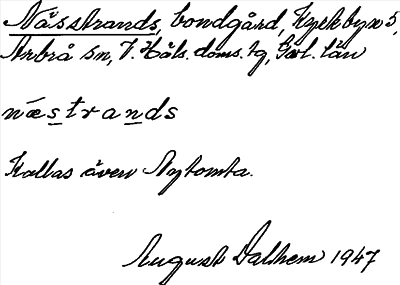 Nässtrands, bondgård, Kyrkbyn 5,
Arbrå sn, V. Häls. doms. tg, Gvl. län
næstrands
Kallas även Nytomta.
August Dalhem 1947